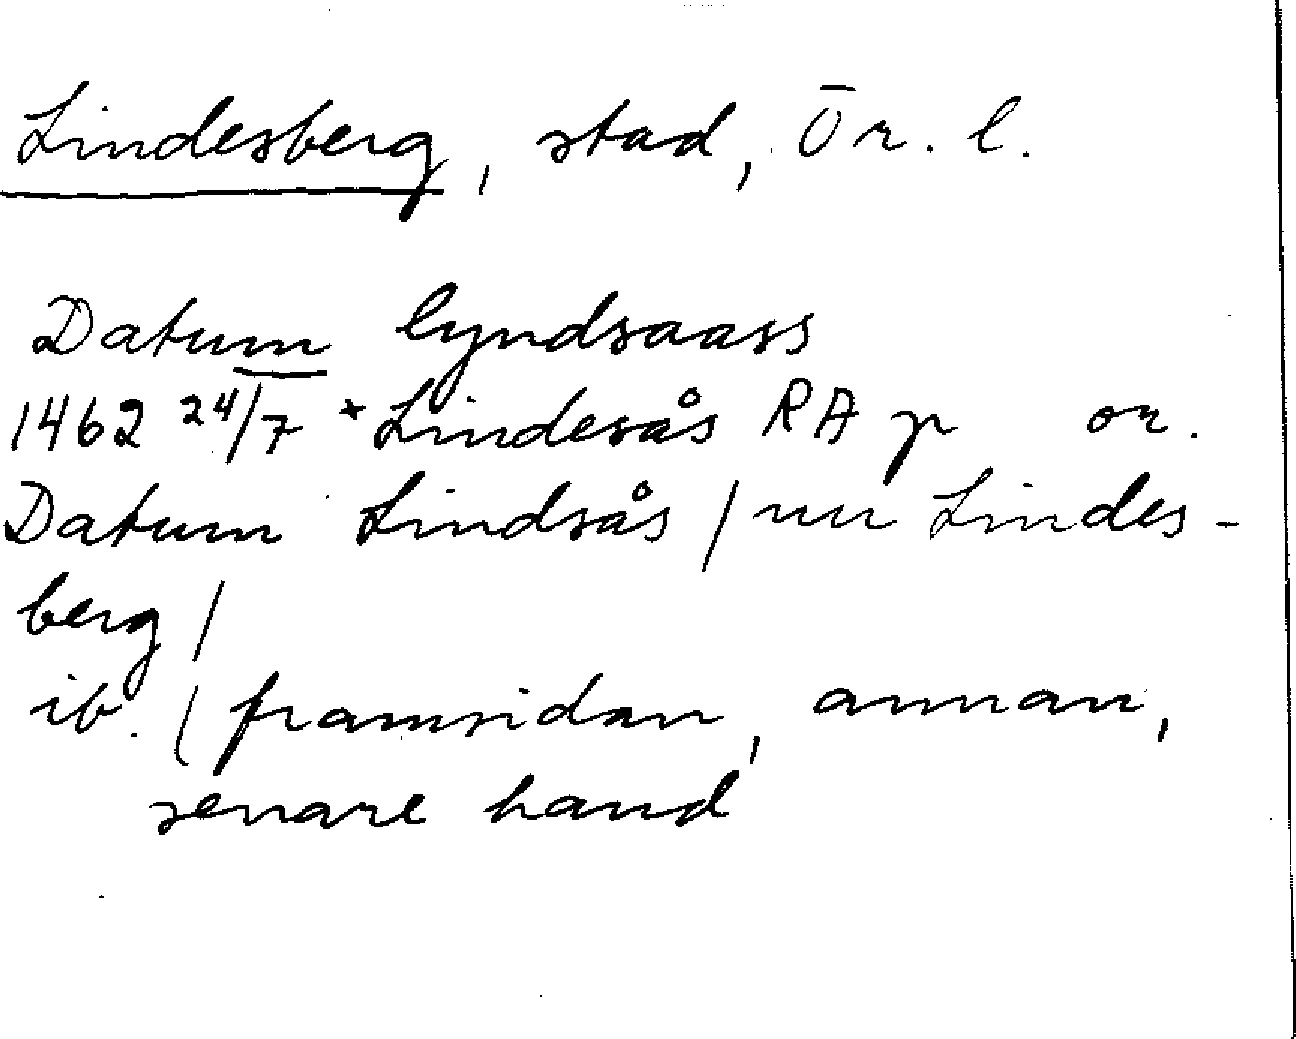 Lindesberg, stad, Ör. l.
Datum lyndsaass
1462 24/7 *Lindesås RA p or.
Datum Lindsås / nu Lindes-
berg /
ib. (framsidan, annan,
senare hand